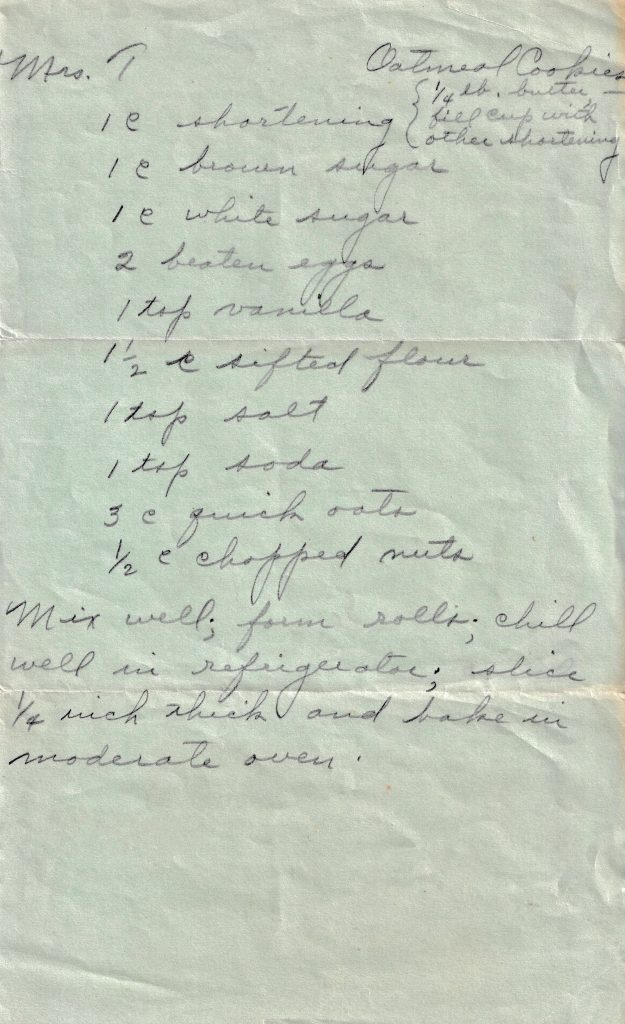 Mrs. T Oatmeal Cookies
1 c shortening { 1/4 lb. butter, —
fill cup with
other shortening
1 c brown sugar
1 c white sugar
2 beaten eggs
1 tsp vanilla
1 1/2 c sifted flour
1 tsp salt
1 tsp soda
3 c quick oats
1/2 c chopped nuts
Mix well; form rolls; chill
well in refrigerator; slice
1/4 inch thick and bake in
moderate oven.